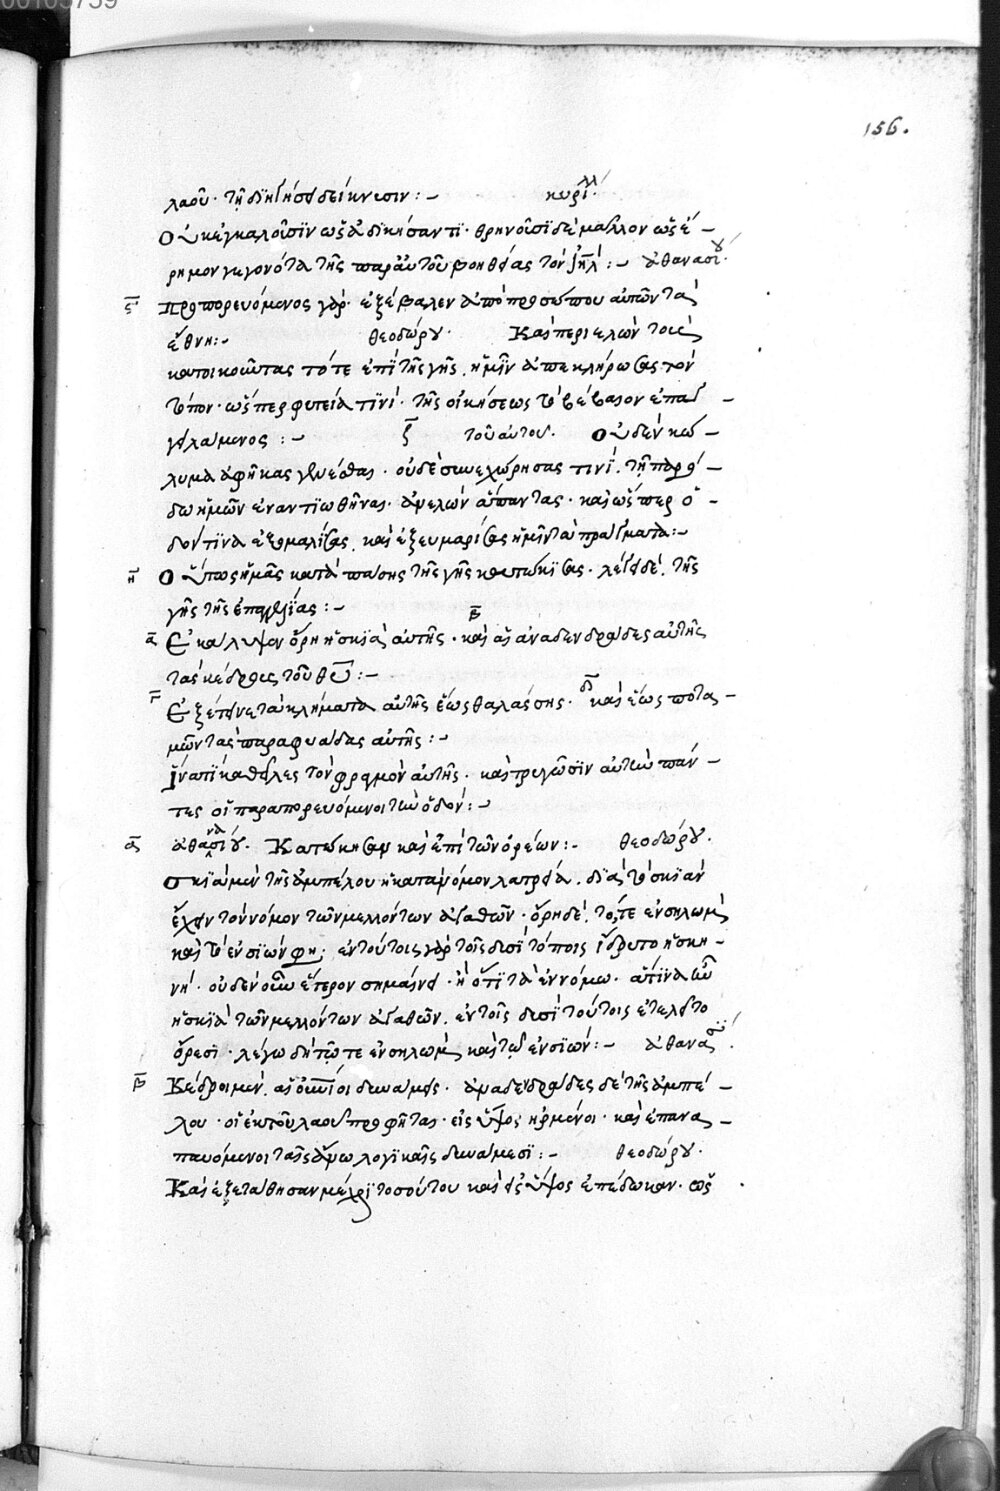 00105759
156.
λαοῦ· τῇ διηγήσει δείκνυσιν :– κυρίλλ·
Οὐκ ἐγκαλοῦσϊν ὡς ἀδικήσαντϊ· θρηνοῦσϊ δὲ μᾶλλον ὡς ἔ–
ρημον γεγονότα τῆς παρ' αὐτοῦ βοηθείας τὸν ἰη̅λ̅ :– ἀθανασίου·
ϛ̅ Προπορευόμενος γὰρ· ἐξέβαλεν ἀπὸ προσώπου αὐτῶν τὰ
ἔθνη :– θεοδώρου· Καὶ περιελὼν τοὺς
κατοικοῦντας τότε ἐπϊ τῆς γῆς, ἡμῖν ἀπεκλήρωσας τὸν
τόπον· ὥσπερ φυτείᾳ τϊνϊ· τῆς οἰκήσεως τὸ βέβαιον ἐπαγ–
γειλάμενος :– ζ̅ τοῦ αὐτοῦ· Οὐδὲν κώ–
λυμα ἀφῆκας γενέσθαι· οὐδὲ συνεχώρησας τινϊ· τῇ παρό–
δω ἡμῶν ἐναντϊωθῆναι· ἀμελῶν ἅπαντας· καὶ ὥσπερ ὁ–
δόν τϊνα ἐξομαλίσας, καὶ ἐξευμαρίσας ἡμῖν τὰ πράγματα :–
η̅ Ὅπως ἡμᾶς κατὰ πάσης τῆς γῆς κατώκϊσας· λέγει δὲ, τῆς
γῆς τῆς ἐπαγγελίας :–
α̅ Ἐκάλυψεν ὄρη ἡ σκϊὰ αὐτῆς· β̅ καὶ αἱ ἀναδενδράδες αὐτῆς
τὰς κέδρους τοῦ θ̅υ̅ :–
γ̅ Ἐξέτεινε τὰ κλήματα αὐτῆς ἕως θαλάσσης· δ̅ καὶ ἕως ποτα–
μῶν τὰς παραφυάδας αὐτῆς :–
Ἱνατϊ καθεῖλες τὸν φραγμὸν αὐτῆς· καὶ τρυγῶσϊν αὐτὴν πάν–
τες οἱ παραπορευόμενοι τὴν ὁδόν :–
α̅ ἀθανασίου· Κατώκησαν καὶ ἐπὶ τῶν ὀρέων :– θεοδώρου·
σκϊὰ μὲν τῆς ἀμπέλου ἡ κατὰ νόμον λατρεία· διὰ τὸ σκϊὰν
ἔχειν τὸν νόμον τῶν μελλόντων ἀγαθῶν· ὄρη δὲ, τό,τε ἐν σηλὼμ
καὶ τὸ ἐν σϊών φη; ἐν τούτοις γὰρ τοῖς δυσϊ τόποις ἵδρυτο ἡ σκη–
νή· οὐδὲν οὖν ἕτερον σημαίνει· ἢ ὅτϊ τὰ ἐννόμω· ἅτϊνα ἦν
ἡ σκϊὰ τῶν μελλόντων ἀγαθῶν, ἐν τοῖς δυσϊ τούτοις ἐτελεῖτο
ὄρεσϊ· λέγω δὴ τῷ τε ἐν σηλὼμ καὶ τῷ ἐν σϊών :– ἀθανασίου·
β̅ Κέδροι μὲν, αἱ οὐ̅νιοι δυνάμεις· ἀναδενδράδες δὲ τῆς ἀμπέ–
λου· οἱ ἐκ τοῦ λαοῦ προφῆται· εἰς ὕψος ἠρμένοι· καὶ ἐπανα–
παυόμενοι ταῖς ἄνω λογϊκαῖς δυνάμεσϊ :– θεοδώρου·
Καὶ ἐξετάθησαν μέχρϊ τοσούτου καὶ εἰς ὕψος ἐπέδωκαν· ὡς